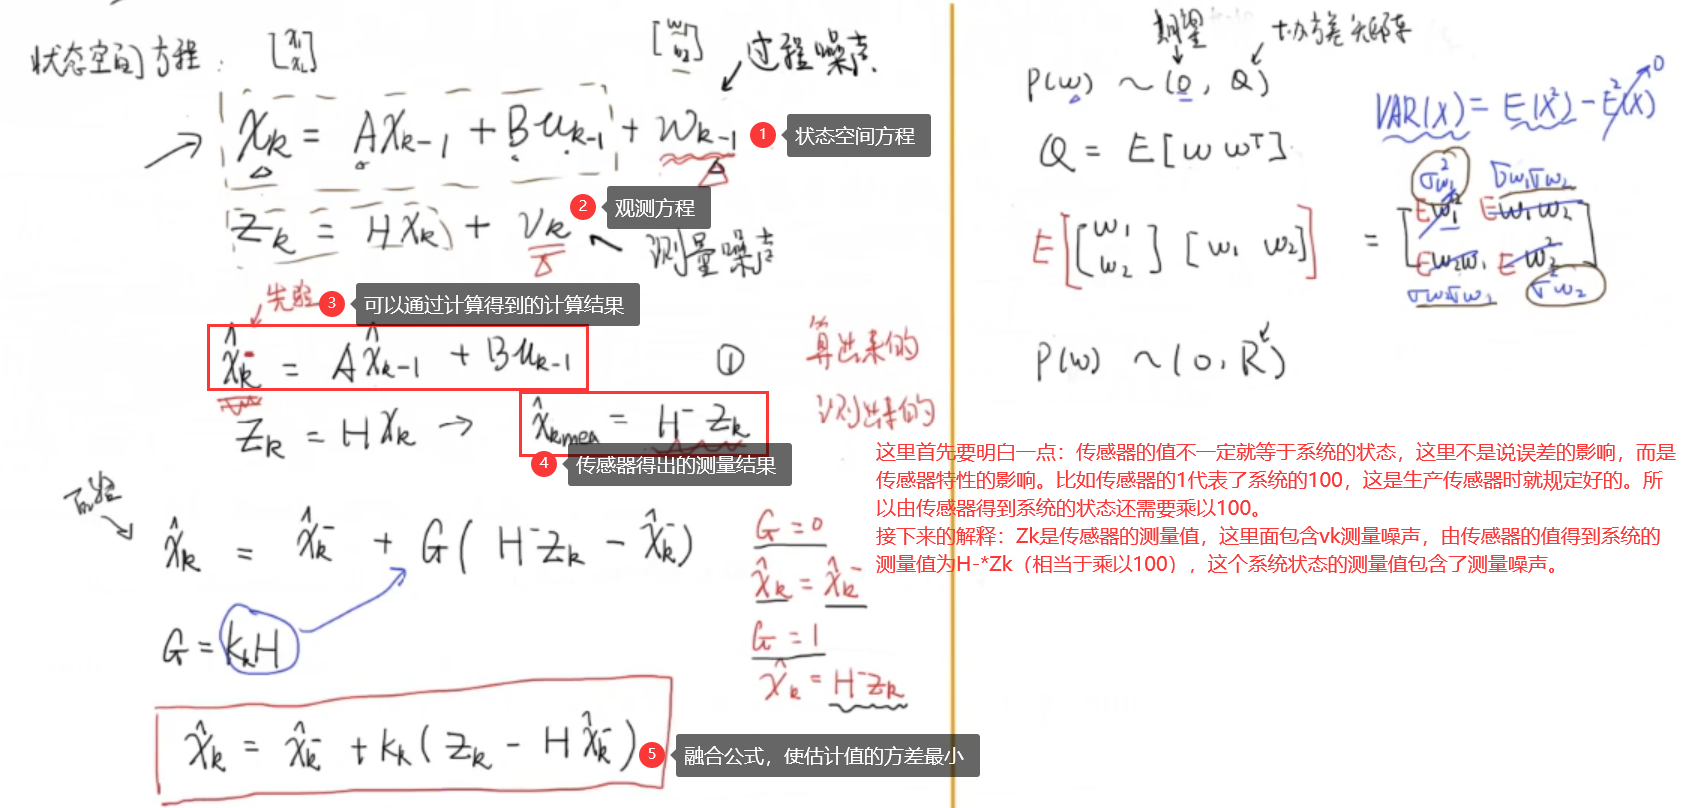 状态空间方程: [x₁ x₂] [w₁ w₂] 过程噪声
Xk = AXk-1 + Buk-1 + Wk-1
1 状态空间方程
Zk = HXk + Vk
2 观测方程
测量噪声
先验
3 可以通过计算得到的计算结果
x̂k⁻ = Ax̂k-1 + Buk-1 ① 算出来的
Zk = HXk → x̂kmea = H⁻Zk 测出来的
4 传感器得出的测量结果
后验
x̂k = x̂k⁻ + G(H⁻Zk - x̂k⁻)
G = 0
x̂k = x̂k⁻
G = 1
x̂k = H⁻Zk
G = KkH
x̂k = x̂k⁻ + Kk(Zk - Hx̂k⁻)
5 融合公式，使估计值的方差最小
期望 协方差矩阵
P(w) ~ (0, Q)
VAR(X) = E(X²) - E²(X) 0
Q = E[w wᵀ]
E[[w₁ w₂] [w₁ w₂]] = [Ew₁² Ew₁w₂ Ew₂w₁ Ew₂²]
σw₁² σw₁σw₂
σw₂σw₁ σw₂²
P(w) ~ (0, R)
这里首先要明白一点：传感器的值不一定就等于系统的状态，这里不是说误差的影响，而是
传感器特性的影响。比如传感器的1代表了系统的100，这是生产传感器时就规定好的。所
以由传感器得到系统的状态还需要乘以100。
接下来的解释：Zk是传感器的测量值，这里面包含vk测量噪声，由传感器的值得到系统的
测量值为H-*Zk（相当于乘以100），这个系统状态的测量值包含了测量噪声。